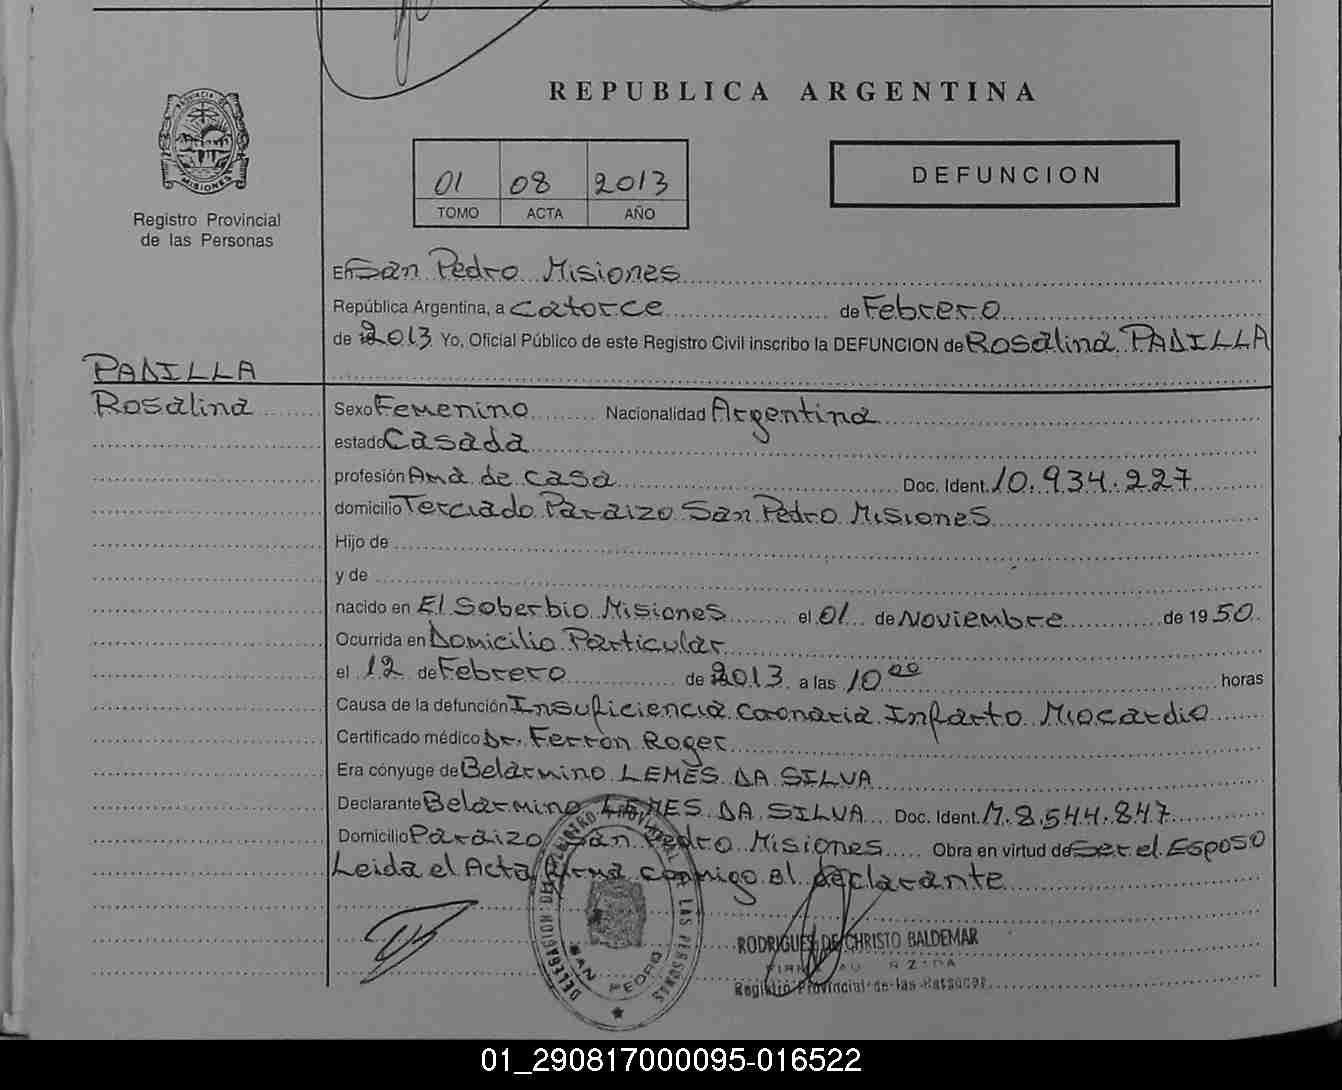 REPUBLICA ARGENTINA
PROVINCIA DE
MISIONES
Registro Provincial
de las Personas
01 08 2013
TOMO ACTA AÑO
DEFUNCION
En San Pedro Misiones
República Argentina, a catorce de Febrero
de 2013 Yo, Oficial Público de este Registro Civil inscribo la DEFUNCION de Rosalina PADILLA
PADILLA
Rosalina
Sexo Femenino Nacionalidad Argentina
estado Casada
profesión Ama de casa Doc. Ident. 10.934.227
domicilio Terciado Paraizo San Pedro Misiones
Hijo de
y de
nacido en El Soberbio Misiones el 01 de Noviembre de 1950
Ocurrida en Domicilio Particular
el 12 de Febrero de 2013 a las 10 00 horas
Causa de la defunción Insuficiencia coronaria Infarto Miocardio
Certificado médico Dr. Ferron Roger
Era cónyuge de Belarmino LEMES DA SILVA
Declarante Belarmino LEMES DA SILVA Doc. Ident. M.8.544.847
Domicilio Paraizo San Pedro Misiones Obra en virtud de Ser el Esposo
Leida el Acta firma conmigo el declarante
DELEGACION DEL REGISTRO PROVINCIAL DE LAS PERSONAS
SAN PEDRO
RODRIGUES DE CHRISTO BALDEMAR
Registro Provincial de las Personas
01_290817000095-016522